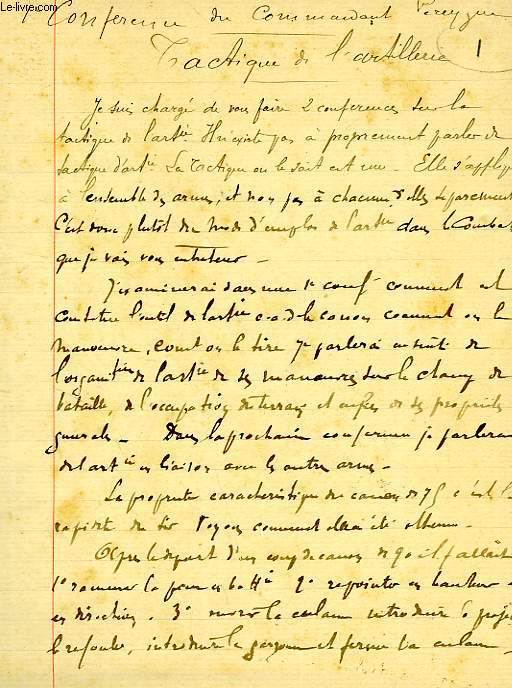 Le-livre.com
Conférence du Commandant
1
Tactique de l'artillerie
Je suis chargé de vous faire 2 conférences sur la
tactique de l'artie. Il n'existe pas à proprement parler de
tactique d'artie. La Tactique on le sait est une. Elle s'appliq
à l'ensemble des armes, et non pas à chacune d'elles séparément
C'est donc plutôt du mode d'emploi de l'artie dans le Combat
que je vais vous entretenir -
J'examinerai dans une 1e conf comment est
constitué l'outil de l'artie c.a.d. le canon comment on le
manoeuvre, comt on le tire. Je parlerai ensuite de
l'organition de l'artie de ses manoeuvres sur le champ de
bataille, de l'occupation du terrain et enfin de ses propriétés
générales - Dans la prochaine conférence je parlerai
de l'artie en liaison avec les autres armes -
La propriété caractéristique du canon de 75 c'est la
rapidité du tir Voyons comment elle a été obtenue -
Après le départ d'un coup de canon de 90 il fallait
1° ramener la pièce en battie 2° repointer en hauteur &
en direction. 3° ouvrir la culasse introduire le proje
le refouler, introduire la gargousse et fermer la culasse -